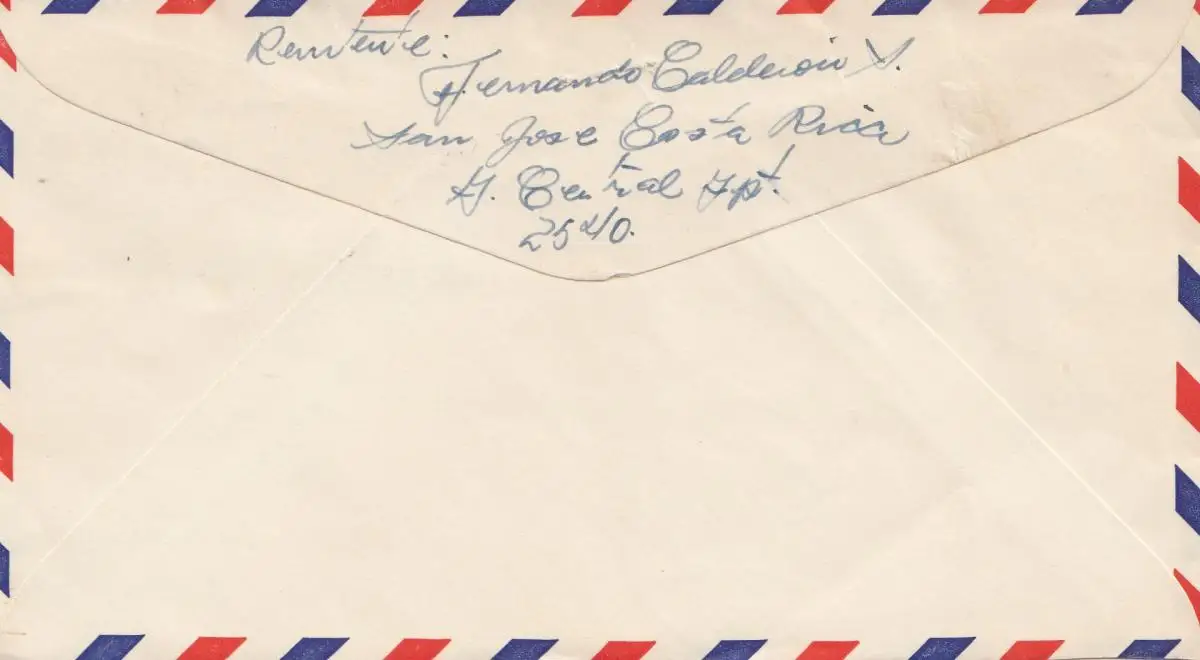 Remitente:
Fernando Calderón S.
San Jose Costa Rica
A. Central Apt.
2540.